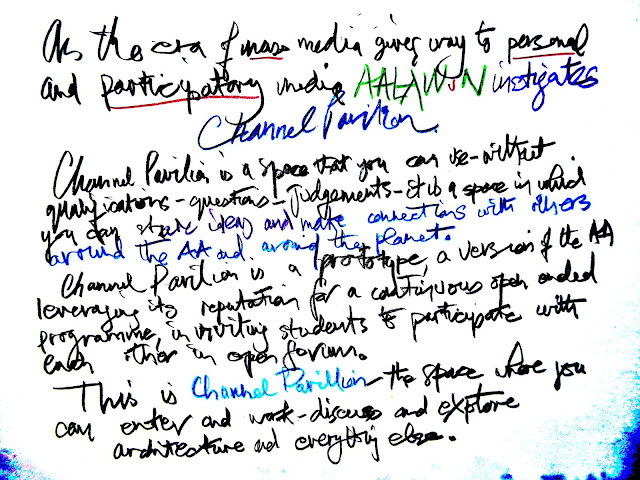 As the era of mass media gives way to personal
and participatory media AALAWuN instigates
Channel Pavilion.
Channel Pavilion is a space that you can use - without
qualifications - questions - judgements - it is a space in which
you can share ideas and make connections with others
around the AA and around the planet.
Channel Pavilion is a prototype, a version of the AA
leveraging its reputation for a continuous open ended
programme, in inviting students to participate with
each other in open forum.
This is Channel Pavillion - the space where you
can enter and work - discuss and explore
architecture and everything else.